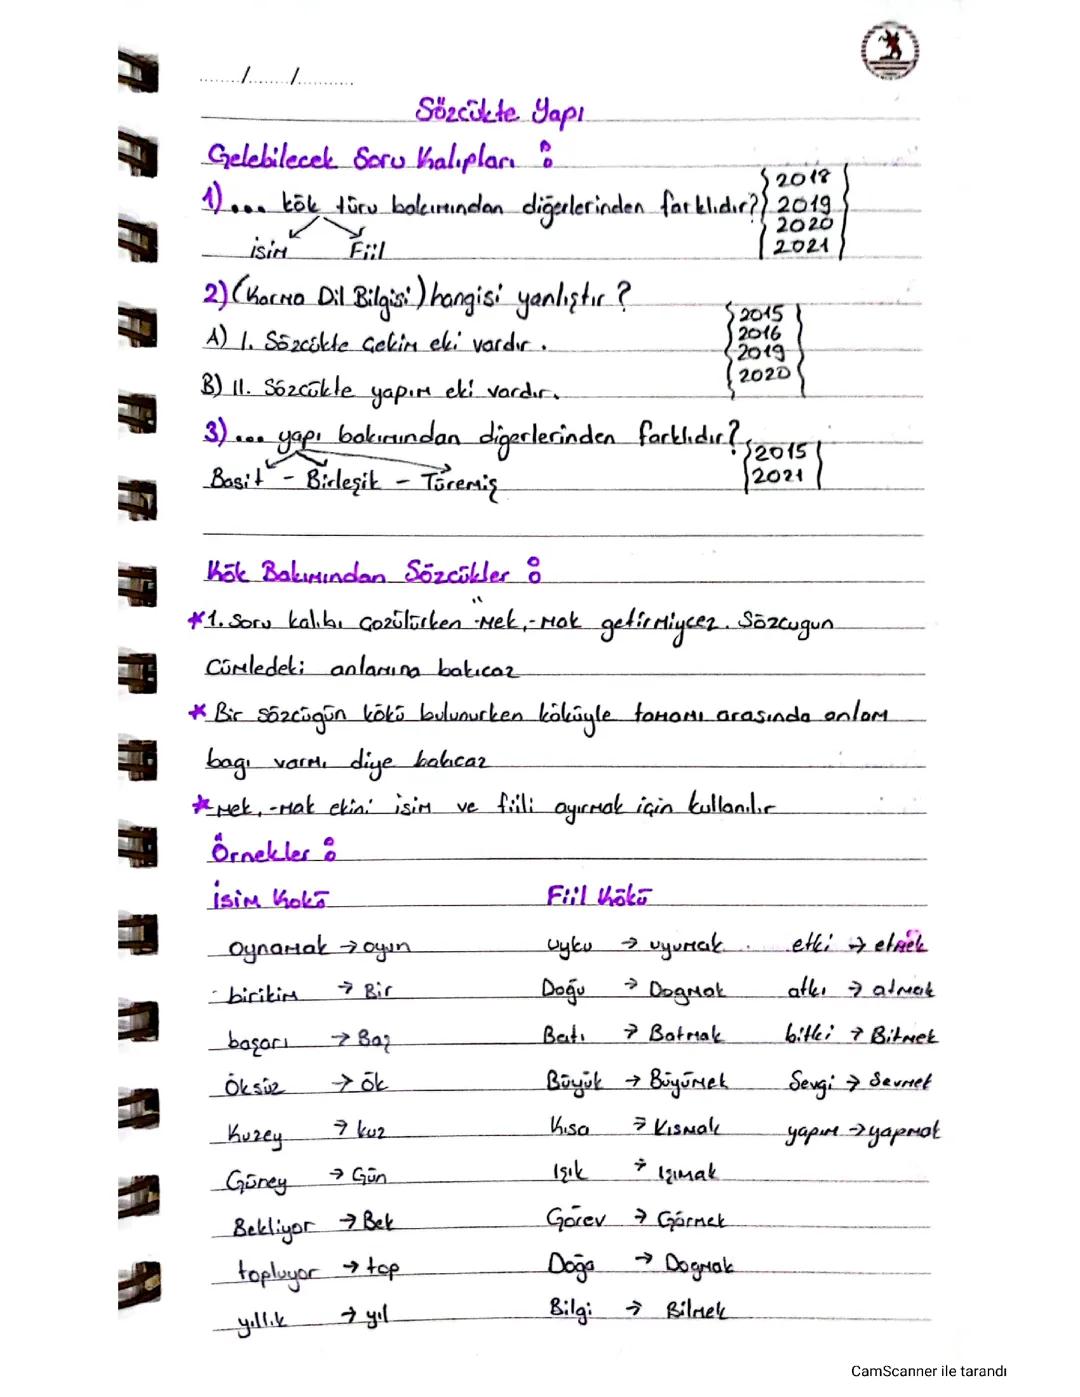 ....../....../..........
Sözcükte Yapı
Gelebilecek Soru Kalıpları :
1)... kök türü bakımından diğerlerinden farklıdır? 2018 2019 2020 2021
isim Fiil
2) (Karma Dil Bilgisi) hangisi yanlıştır ?
2015 2016 2019 2020
A) I. Sözcükte Çekim eki vardır.
B) II. Sözcükte yapım eki vardır.
3)... yapı bakımından digerlerinden farklıdır? 2015 2021
Basit - Birleşik - Türemiş
Kök Bakımından Sözcükler :
*1. Soru kalıbı çozülürken "-mek,-mak getirmiycez. Sözcugun
Cümledeki anlamına bakıcaz
* Bir sözcügün kökü bulunurken köküyle tamamı arasında anlam
bagı varmı diye bakıcaz
* mek, -mak ekini isim ve fiili ayırmak için kullanılır
Örnekler :
İsim Kökü Fiil Kökü
oynamak → oyun uyku → uyumak etki → etmek
birikim → Bir Doğu → Dogmak atkı → atmak
başarı → Baş Batı → Batmak bitki → Bitmek
Öksüz → ök Büyük → Büyümek Sevgi → Sevmek
Kuzey → kuz Kısa → Kısmak yapım → yapmak
Güney → Gün Işık → Işımak
Bekliyor → Bek Görev → Görmek
topluyor → top Doğa → Dogmak
yıllık → yıl Bilgi → Bilmek
CamScanner ile tarandı